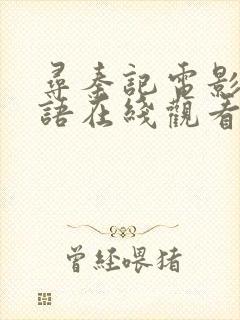 尋秦記電影
語在綫觀看
曾經喂猪